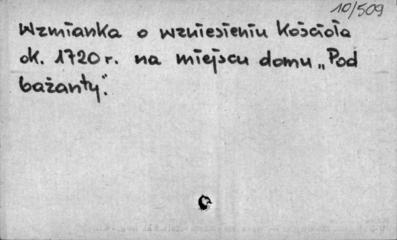 10/509
Wzmianka o wzniesieniu Kościoła
ok. 1720 r. na miejscu domu „Pod
bażanty".